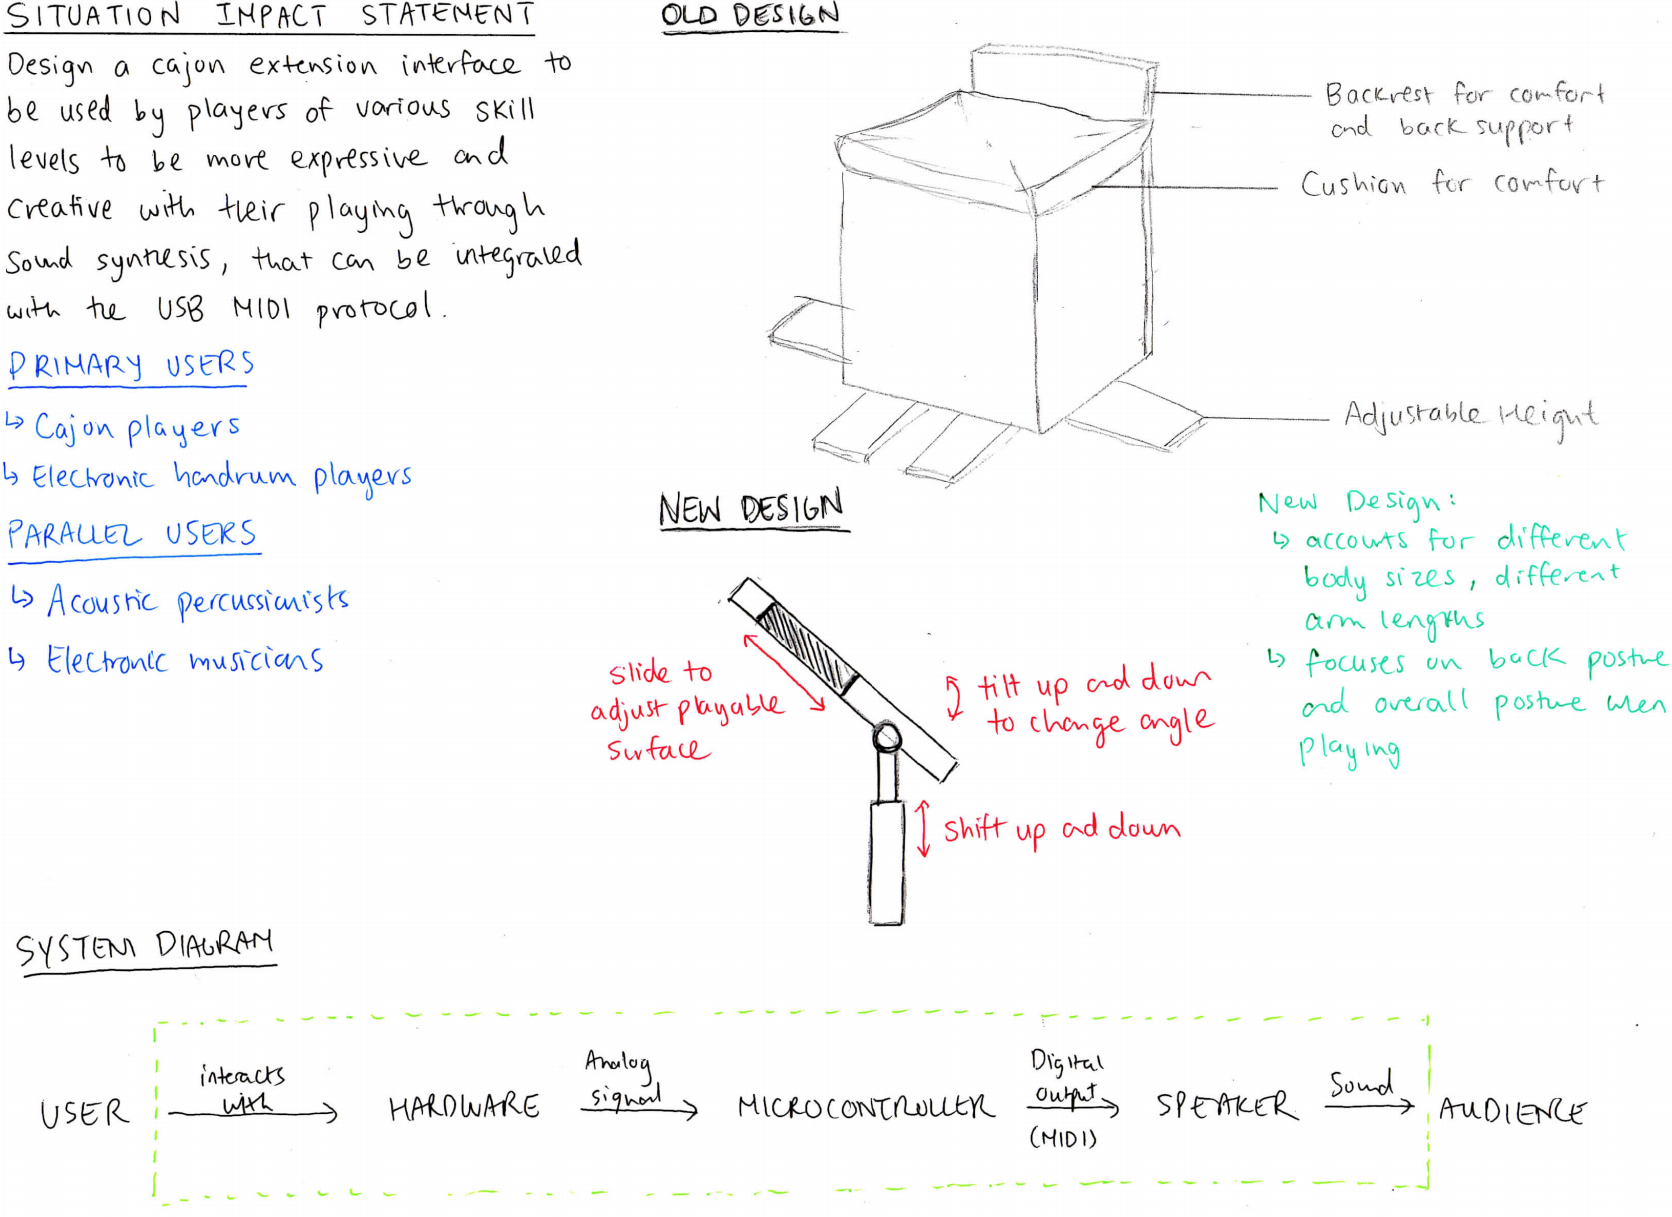 SITUATION IMPACT STATEMENT
Design a cajon extension interface to
be used by players of various skill
levels to be more expressive and
creative with their playing through
Sound synthesis, that can be integrated
with the USB MIDI protocol.
PRIMARY USERS
↳ Cajon players
↳ Electronic handrum players
PARALLEL USERS
↳ Acoustic percussionists
↳ Electronic musicians
OLD DESIGN
Backrest for comfort
and back support
Cushion for comfort
Adjustable Height
NEW DESIGN
slide to
adjust playable
surface
tilt up and down
to change angle
shift up and down
New Design:
↳ accounts for different
body sizes, different
arm lengths
↳ focuses on back posture
and overall posture when
playing
SYSTEM DIAGRAM
USER
interacts
with
HARDWARE
Analog
signal
MICROCONTROLLER
Digital
output
(MIDI)
SPEAKER
Sound
AUDIENCE